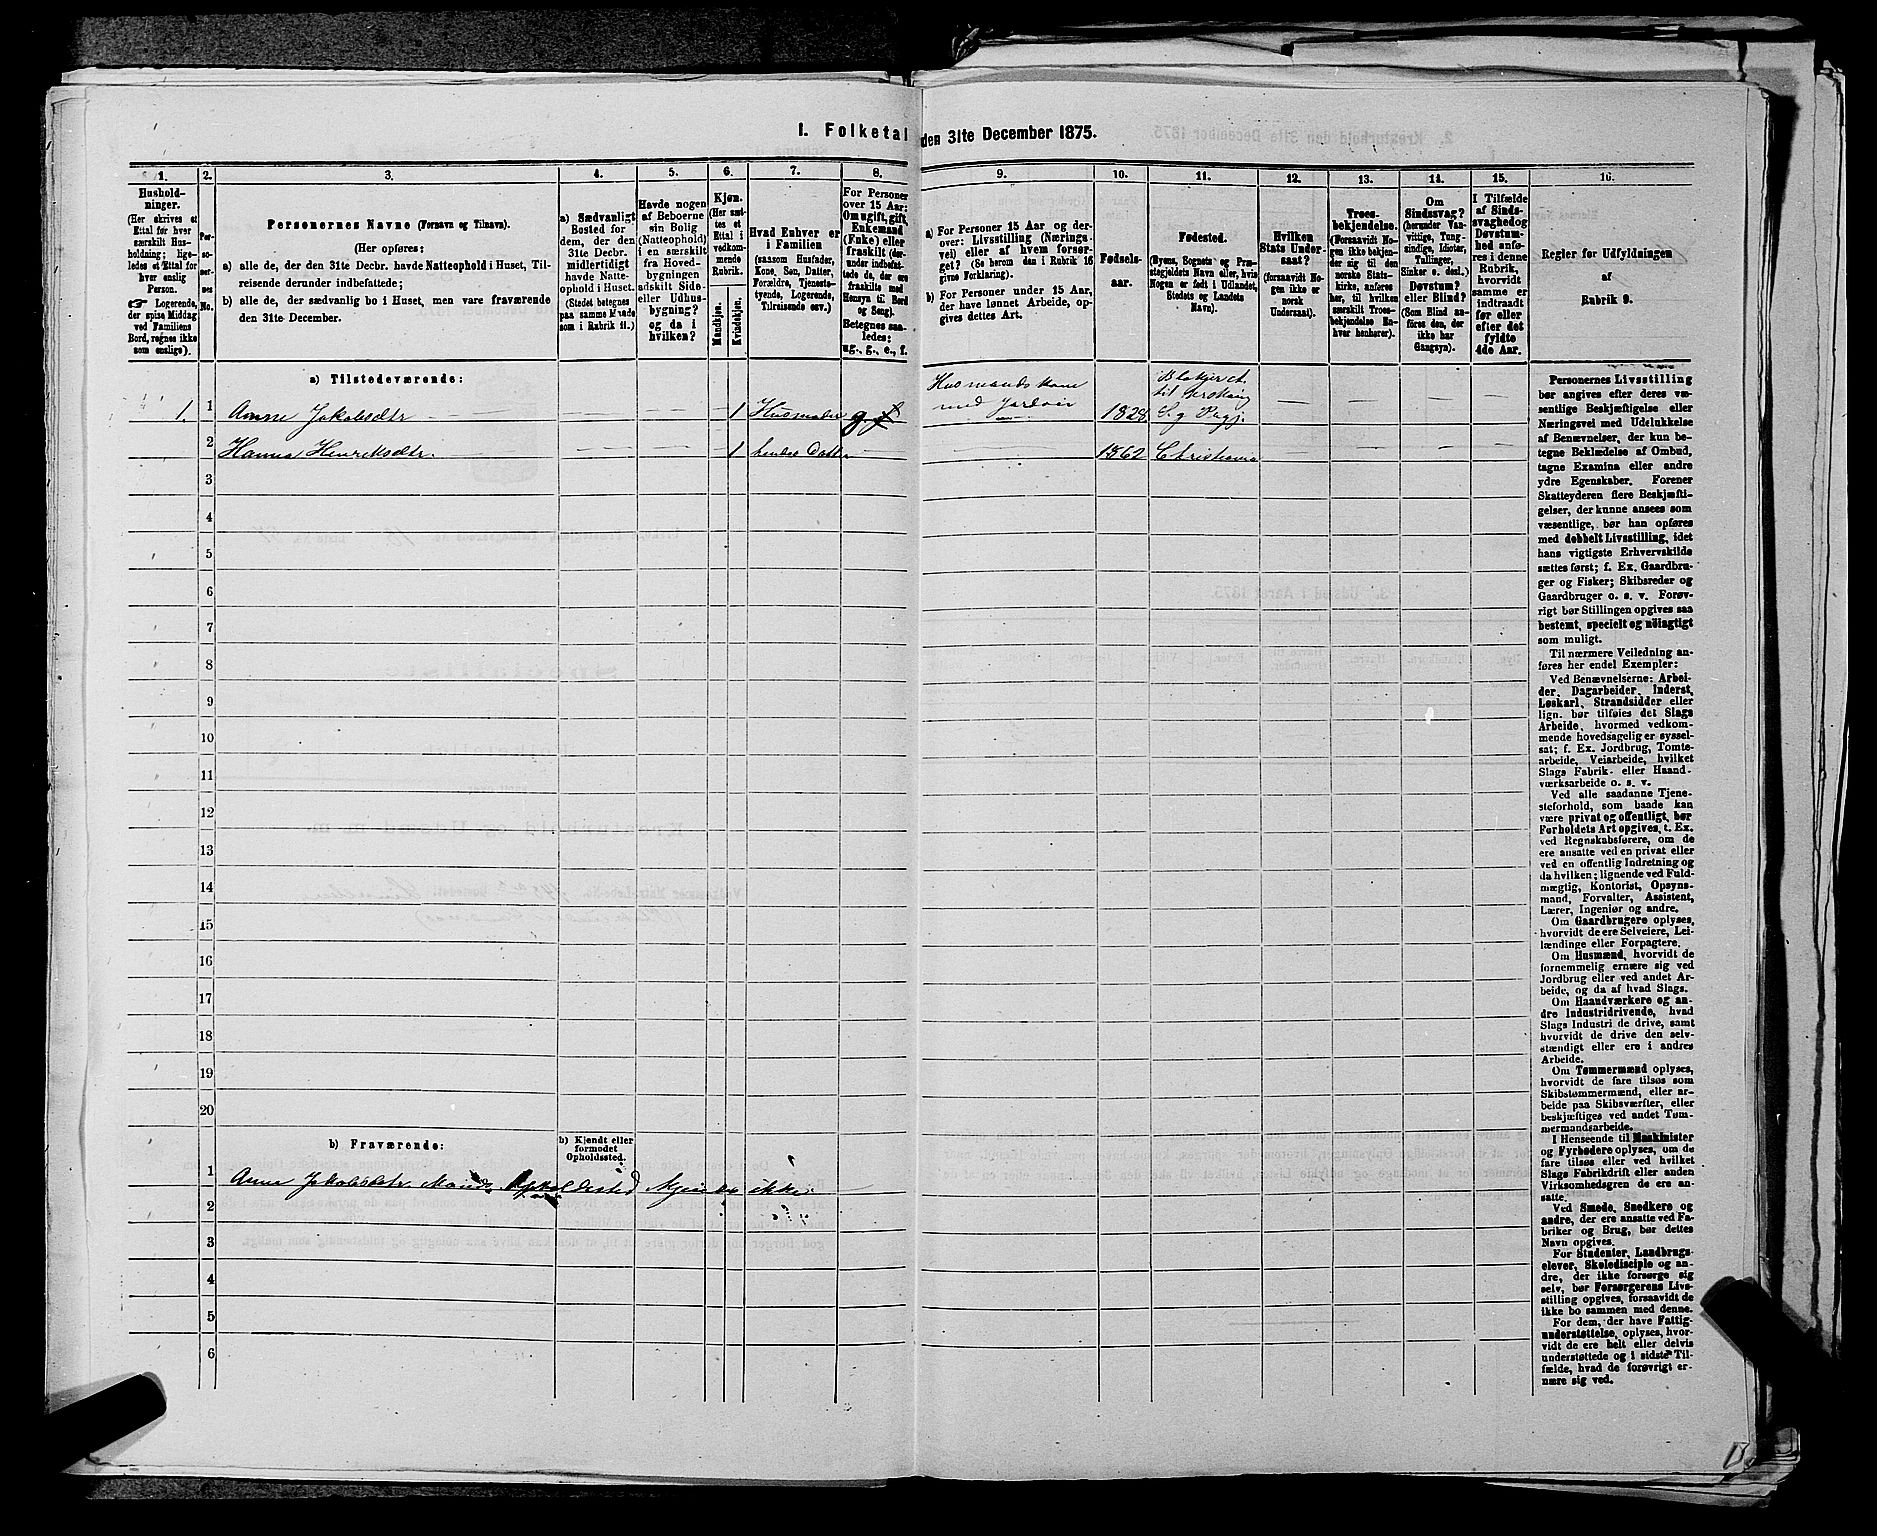 I. Folketal den 31te December 1875.
1.
Hushold-
ninger.
(Her skrives et
Ettal for hver
særskilt Hus-
holdning; lige-
ledes et Ettal for
hver enslig
Person.
☞ Logerende,
der spise Middag
ved Familiens
Bord, regnes ikke
som enslige).
2.
Per-
so-
ner-
nes
No.
3.
Personernes Navne (Fornavn og Tilnavn).
(Her opføres:
a) alle de, der den 31te Decbr. havde Natteophold i Huset, Til-
reisende derunder indbefattede;
b) alle de, der sædvanlig bo i Huset, men vare fraværende
den 31te December.
4.
a) Sædvanligt
Bosted for
dem, der den
31te Decbr.
midlertidigt
havde Natte-
ophold i Huset.
(Stedet betegnes
paa samme Maade
som i Rubrik 11.)
5.
Havde nogen
af Beboerne
sin Bolig
(Natteophold)
i en særskilt
fra Hoved-
bygningen
adskilt Side-
eller Udhus-
bygning?
og da i
hvilken?
6.
Kjøn.
(Her sæt-
tes et
Ettal i
vedkom-
mende
Rubrik.
Mandkjøn.
Kvindekjøn.
7.
Hvad Enhver er
i Familien
(saasom Husfader,
Kone, Søn, Datter,
Forældre, Tjeneste-
tyende, Logerende,
Tilreisende osv.)
8.
For Personer
over 15 Aar:
Om ugift, gift,
Enkemand
(Enke) eller
fraskilt (der-
under indbefat-
tede de, der ere
fraskilte med
Hensyn til Bord
og Seng).
Betegnes saa-
ledes:
ug., g., e., f.
9.
a) For Personer 15 Aar og der-
over: Livsstilling (Nærings-
vei) eller af hvem forsør-
get? (Se herom den i Rubrik 16
givne Forklaring).
b) For Personer under 15 Aar,
der have lønnet Arbeide, op-
gives dettes Art.
10.
Fødsels-
aar.
11.
Fødested.
(Byens, Sognets og Præ-
stegjeldets Navn eller, hvis
Nogen er født i Udlandet,
Stedets og Landets
Navn).
12.
Hvilken
Stats Under-
saat?
(forsaavidt No-
gen ikke er
norsk
Undersaat).
13.
Troes-
bekjendelse.
(Forsaavidt No-
gen ikke bekjen-
der sig til den
norske Stats-
kirke, anføres
her, til hvilken
særskilt Troes-
bekjendelse En-
hver henhører).
14.
Om
Sindssvag?
(herunder Van-
vittige, Tung-
sindige, Idioter,
Tullinger,
Sinker o. desl.)
Døvstum?
eller Blind?
(Som Blind an-
føres den, der
ikke har
Gangsyn).
15.
I Tilfælde
af Sinds-
svaghed og
Døvstum-
hed anfø-
res i denne
Rubrik,
hvorvidt
samme er
indtraadt
før eller
efter det
fyldte
4de Aar.
16.
Regler for Udfyldningen
af
Rubrik 9.
a) Tilstedeværende:
1. 1 Anne Jakobsdtr — — — 1 Husmoder g. Husmandskone med Jord 1828 S. g Prægj.
2 Hanna Henriksdtr. — — — 1 hendes Datter — — 1862 Christiania — — — —
3
4
5
6
7
8
9
10
11
12
13
14
15
16
17
18
19
20
b) Fraværende:
b) Kjendt eller
formodet
Opholdssted.
1 Anne Jakobsdtr Mands Opholdssted kjendes ikke.
2
3
4
5
6
Personernes Livsstilling
bør angives efter deres væ-
sentlige Beskjæftigelse eller
Næringsvei med Udelukkelse
af Benævnelser, der kun be-
tegne Beklædelse af Ombud,
tagne Examina eller andre
ydre Egenskaber. Forener
Skatteyderen flere Beskjæfti-
gelser, der kunne ansees som
væsentlige, bør han opføres
med dobbelt Livsstilling, idet
hans vigtigste Erhvervskilde
sættes først; f. Ex. Gaardbru-
ger og Fisker; Skibsreder og
Gaardbruger o. s. v. Forøv-
rigt bør Stillingen opgives saa
bestemt, specielt og nøiagtigt
som muligt.
Til nærmere Veiledning an-
føres her endel Exempler:
Ved Benævnelserne: Arbei-
der, Dagarbeider, Inderst,
Løskarl, Strandsidder eller
lign. bør tilføies det Slags
Arbeide, hvormed vedkom-
mende hovedsagelig er syssel-
sat; f. Ex. Jordbrug, Tomte-
arbeide, Veiarbeide, hvilket
Slags Fabrik- eller Haand-
værksarbeide o. s. v.
Ved alle saadanne Tjene-
steforhold, som baade kan
være privat og offentligt, bør
Forholdets Art opgives, t. Ex.
ved Regnskabsførere, om de
ere ansatte ved en privat eller
ved en offentlig Indretning og
da hvilken; lignende ved Fuld-
mægtig, Kontorist, Opsyns-
mand, Forvalter, Assistent,
Lærer, Ingeniør og andre.
Om Gaardbrugere oplyses,
hvorvidt de ere Selveiere, Lei-
lændinge eller Forpagtere.
Om Husmænd, hvorvidt de
fornemmelig ernære sig ved
Jordbrug eller ved andet Ar-
beide, og da af hvad Slags.
Om Haandværkere og an-
dre Industridrivende, hvad
Slags Industri de drive, samt
hvorvidt de drive den selv-
stændigt eller ere i andres
Arbeide.
Om Tømmermænd oplyses,
hvorvidt de fare tilsøs som
Skibstømmermænd, eller ar-
beide paa Skibsværfter, eller
beskjæftiges ved andet Tøm-
mermandsarbeide.
I Henseende til Maskinister
og Fyrbødere oplyses, om de
fare tilsøs eller ved hvilket
Slags Fabrikdrift eller anden
Virksomhedsgren de ere an-
satte.
Ved Smede, Snedkere og
andre, der ere ansatte ved Fa-
briker og Brug, bør dettes
Navn opgives.
For Studenter, Landbrugs-
elever, Skoledisciple og an-
dre, der ikke forsørge sig
selv, bør Forsørgerens Livs-
stilling opgives, forsaavidt de
ikke bo sammen med denne.
For dem, der have Fattig-
understøttelse, oplyses, hvor-
vidt de ere helt eller delvis
understøttede og i sidste Til-
fælde, hvad de forøvrigt er-
nære sig ved.